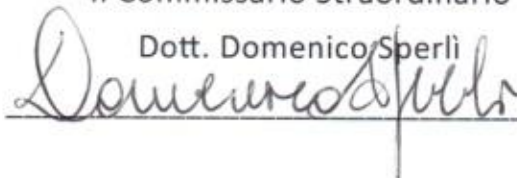 Il Commissario Straordinario
Dott. Domenico Sperlì
Domenico Sperlì